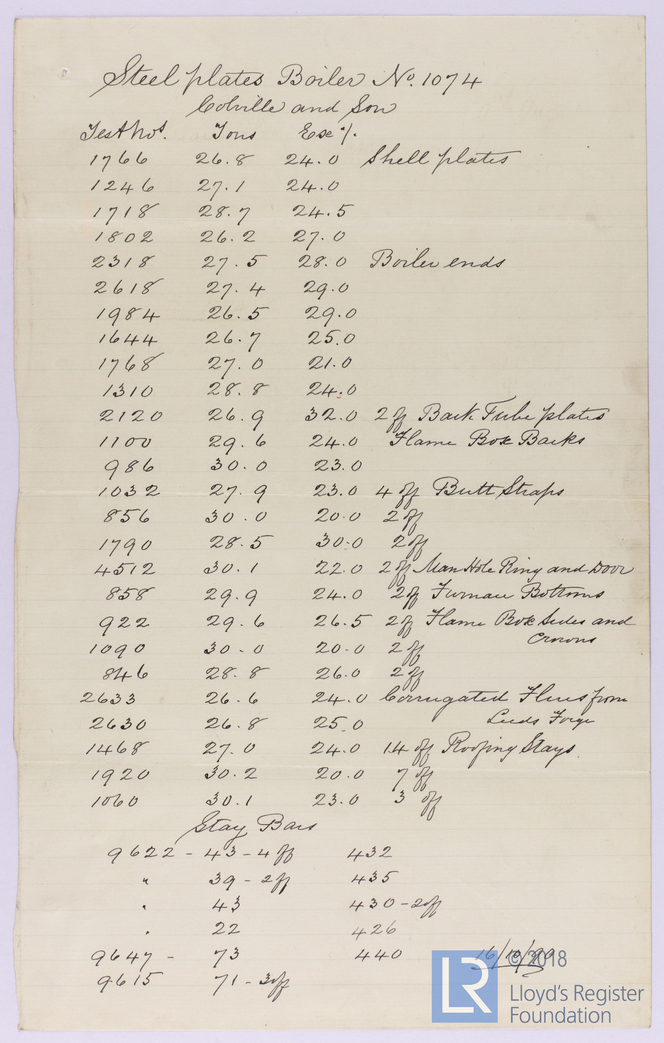 Steel plates Boiler No. 1074
Colville and Son
Test Nos. Tons Exe %.
1766 26.8 24.0 Shell plates
1246 27.1 24.0
1718 28.7 24.5
1802 26.2 27.0
2318 27.5 28.0 Boiler ends
2618 27.4 29.0
1984 26.5 29.0
1644 26.7 25.0
1768 27.0 21.0
1310 28.8 24.0
2120 26.9 32.0 2 off Back Tube plates
1100 29.6 24.0 Flame Box Backs
986 30.0 23.0
1032 27.9 23.0 4 off Butt Straps
856 30.0 20.0 2 off
1790 28.5 30.0 2 off
4512 30.1 22.0 2 off Man Hole Ring and Door
858 29.9 24.0 2 off Furnace Bottoms
922 29.6 26.5 2 off Flame Box Sides and
Crowns
1090 30.0 20.0 2 off
846 28.8 26.0 2 off
2633 26.6 24.0 Corrugated Flues from
2630 26.8 25.0 Leeds Forge
1468 27.0 24.0 14 off Roofing Stays.
1920 30.2 20.0 7 off
1060 30.1 23.0 3 off
Stay Bars
9622 - 43 - 4 off 432
" 39 - 2 off 435
" 43 430 - 2 off
" 22 426
9647 - 73 440
9615 71 - 3 off
© 2018
LR Lloyd's Register
Foundation